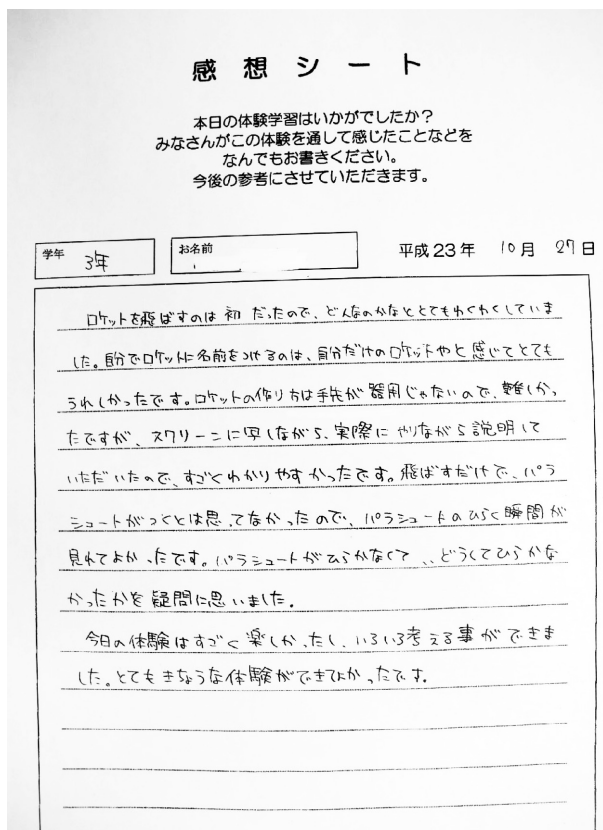 感想シート
本日の体験学習はいかがでしたか？
みなさんがこの体験を通して感じたことなどを
なんでもお書きください。
今後の参考にさせていただきます。
学年 3年 お名前 平成23年 10月 27日
ロケットを飛ばすのは初 だったので、どんなのかなととてもわくわくしていま
した。自分でロケットに名前をつけるのは、自分だけのロケットやと感じてとても
うれしかったです。ロケットの作り方は手先が器用じゃないので、難しかっ
たですが、スクリーンに写しながら、実際にやりながら説明して
いただいたので、すごくわかりやすかったです。飛ばすだけで、パラ
シュートがつくとは思ってなかったので、パラシュートのひらく瞬間が
見れてよかったです。パラシュートがひらかなくて、、どうしてひらかな
かったかを疑問に思いました。
今日の体験はすごく楽しかったし、いろいろ考える事ができま
した。とてもきちょうな体験ができてよかったです。